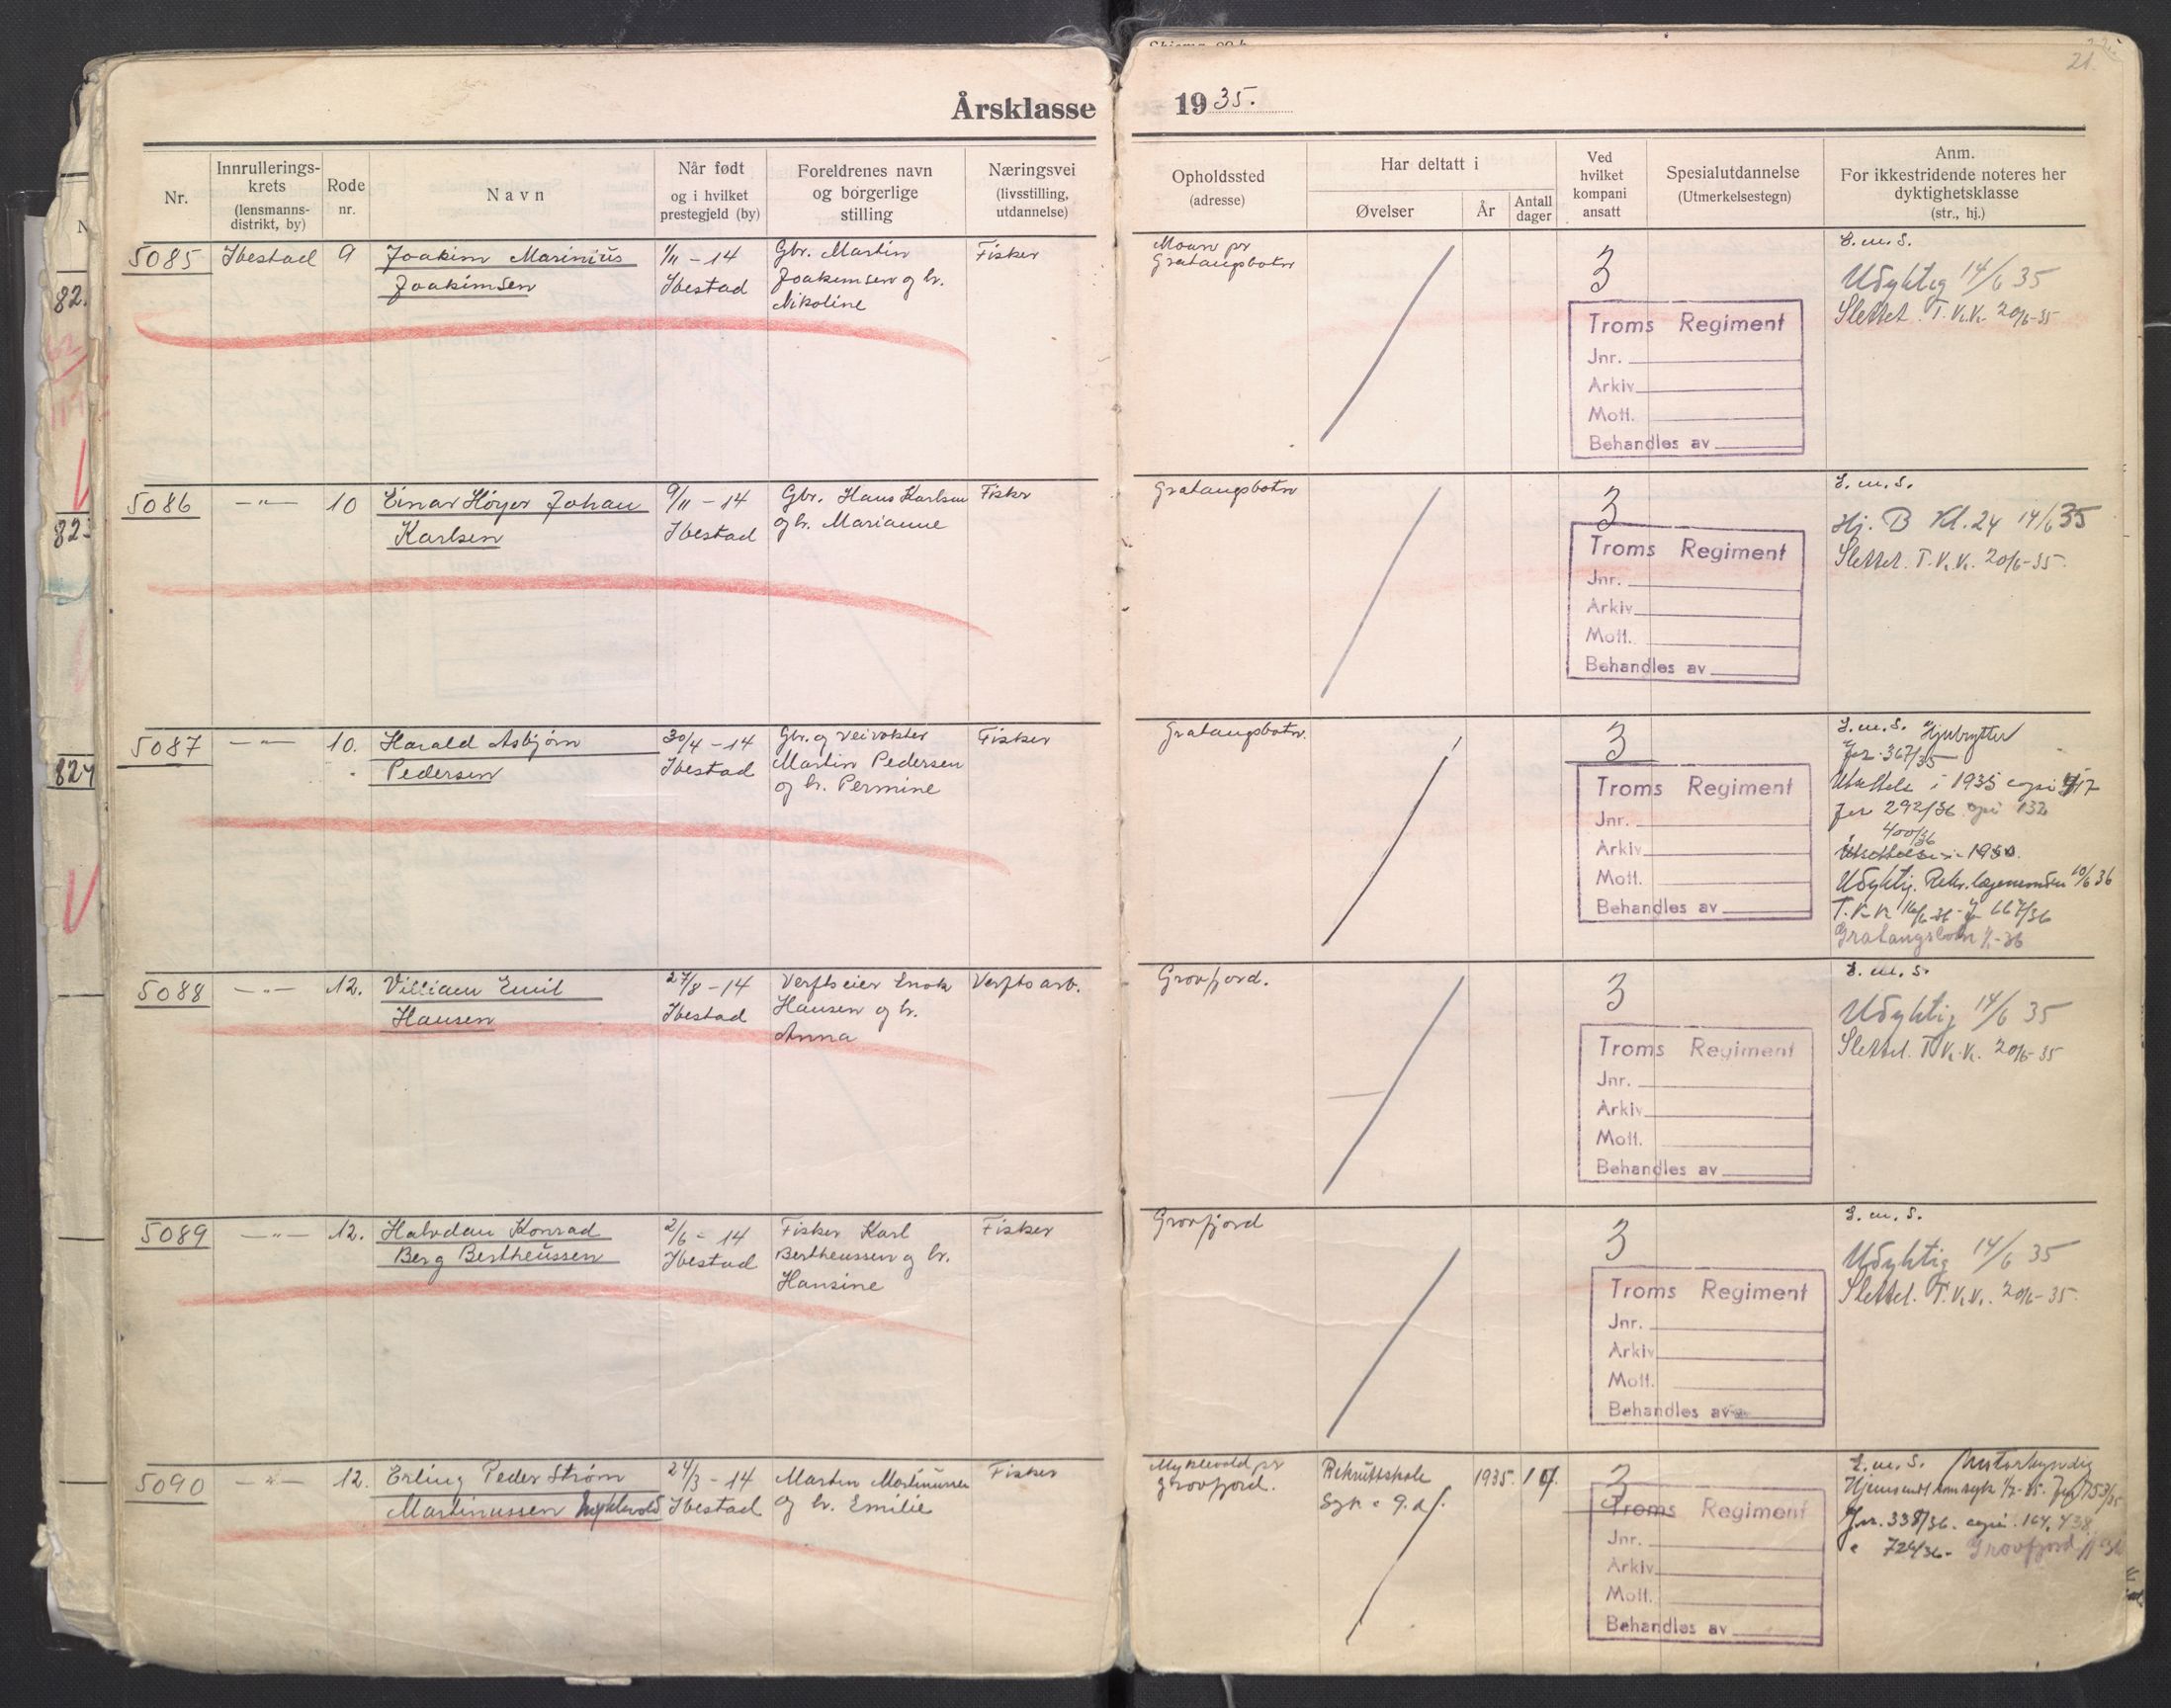 Årsklasse 1935.
21.
Nr.
Innrullerings-
krets
(lensmanns-
distrikt, by)
Rode
nr.
Navn
Når født
og i hvilket
prestegjeld (by)
Foreldrenes navn
og borgerlige
stilling
Næringsvei
(livsstilling,
utdannelse)
Opholdssted
(adresse)
Har deltatt i
Øvelser
År
Antall
dager
Ved
hvilket
kompani
ansatt
Spesialutdannelse
(Utmerkelsestegn)
Anm.
For ikkestridende noteres her
dyktighetsklasse
(str., hj.)
5085 Ibestad 9 Joakim Marinius
Joakimsen
1/11 - 14
Ibestad
Gbr. Martin
Joakimsen og h.
Nikoline
Fisker
Moan pr
Gratangsbotn
3
Troms Regiment
Jnr.
Arkiv
Mott.
Behandles av
S.m.S.
Udyktig 14/6 35
Slettet. T.Kr.K. 20/6-35
5086 -"- 10 Einar Höyer Johan
Karlsen
9/11 - 14
Ibestad
Gbr. Hans Karlsen
og h. Marianne
Fisker
Gratangsbotn
3
Troms Regiment
Jnr.
Arkiv
Mott.
Behandles av
S.m.S.
Hj. B Kl. 24 14/6 35
Slettet. T.Kr.K. 20/6-35.
5087 -"- 10. Harald Asbjörn
Pedersen
30/4 - 14
Ibestad
Gbr. og veivokter
Martin Pedersen
og h. Permine
Fisker
Gratangsbotn.
3
Troms Regiment
Jnr.
Arkiv
Mott.
Behandles av
S.m.S.
Jnr. 367/35
i 1935
292/36 132
400/36
Udyktig. Rekr. 10/6 36
667/36
Gratangsbotn
5088 -"- 12. Villiam Emil
Hansen
27/8 - 14
Ibestad
Verftseier Enok
Hansen og h.
Anna
Verftsarb.
Grovfjord.
3
Troms Regiment
Jnr.
Arkiv
Mott.
Behandles av
S.m.S.
Udyktig 14/6 35
Slettet. T.Kr.K. 20/6-35
5089 -"- 12. Halvdan Konrad
Berg Bertheussen
2/6 - 14
Ibestad
Fisker Karl
Bertheussen og h.
Hansine
Fisker
Grovfjord
3
Troms Regiment
Jnr.
Arkiv
Mott.
Behandles av
S.m.S.
Udyktig 14/6 35
Slettet. T.Kr.K. 20/6-35.
5090 -"- 12. Erling Peder Ström
Martinussen Myklevold
24/3 - 14
Ibestad
Martin Martinussen
og h. Emilie
Fisker
Myklevold pr
Grovfjord.
Rekruttskole 1935.
3
Troms Regiment
Jnr.
Arkiv
Mott.
Behandles av
S.m.S. Motorkyndig
Jnr. 338/36. 164, 438
724/36- Grovfjord